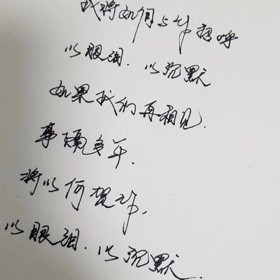 我将如何与你招呼
以眼泪、以沉默
如果我们再相见
事隔多年
将以何贺你、
以眼泪、以沉默